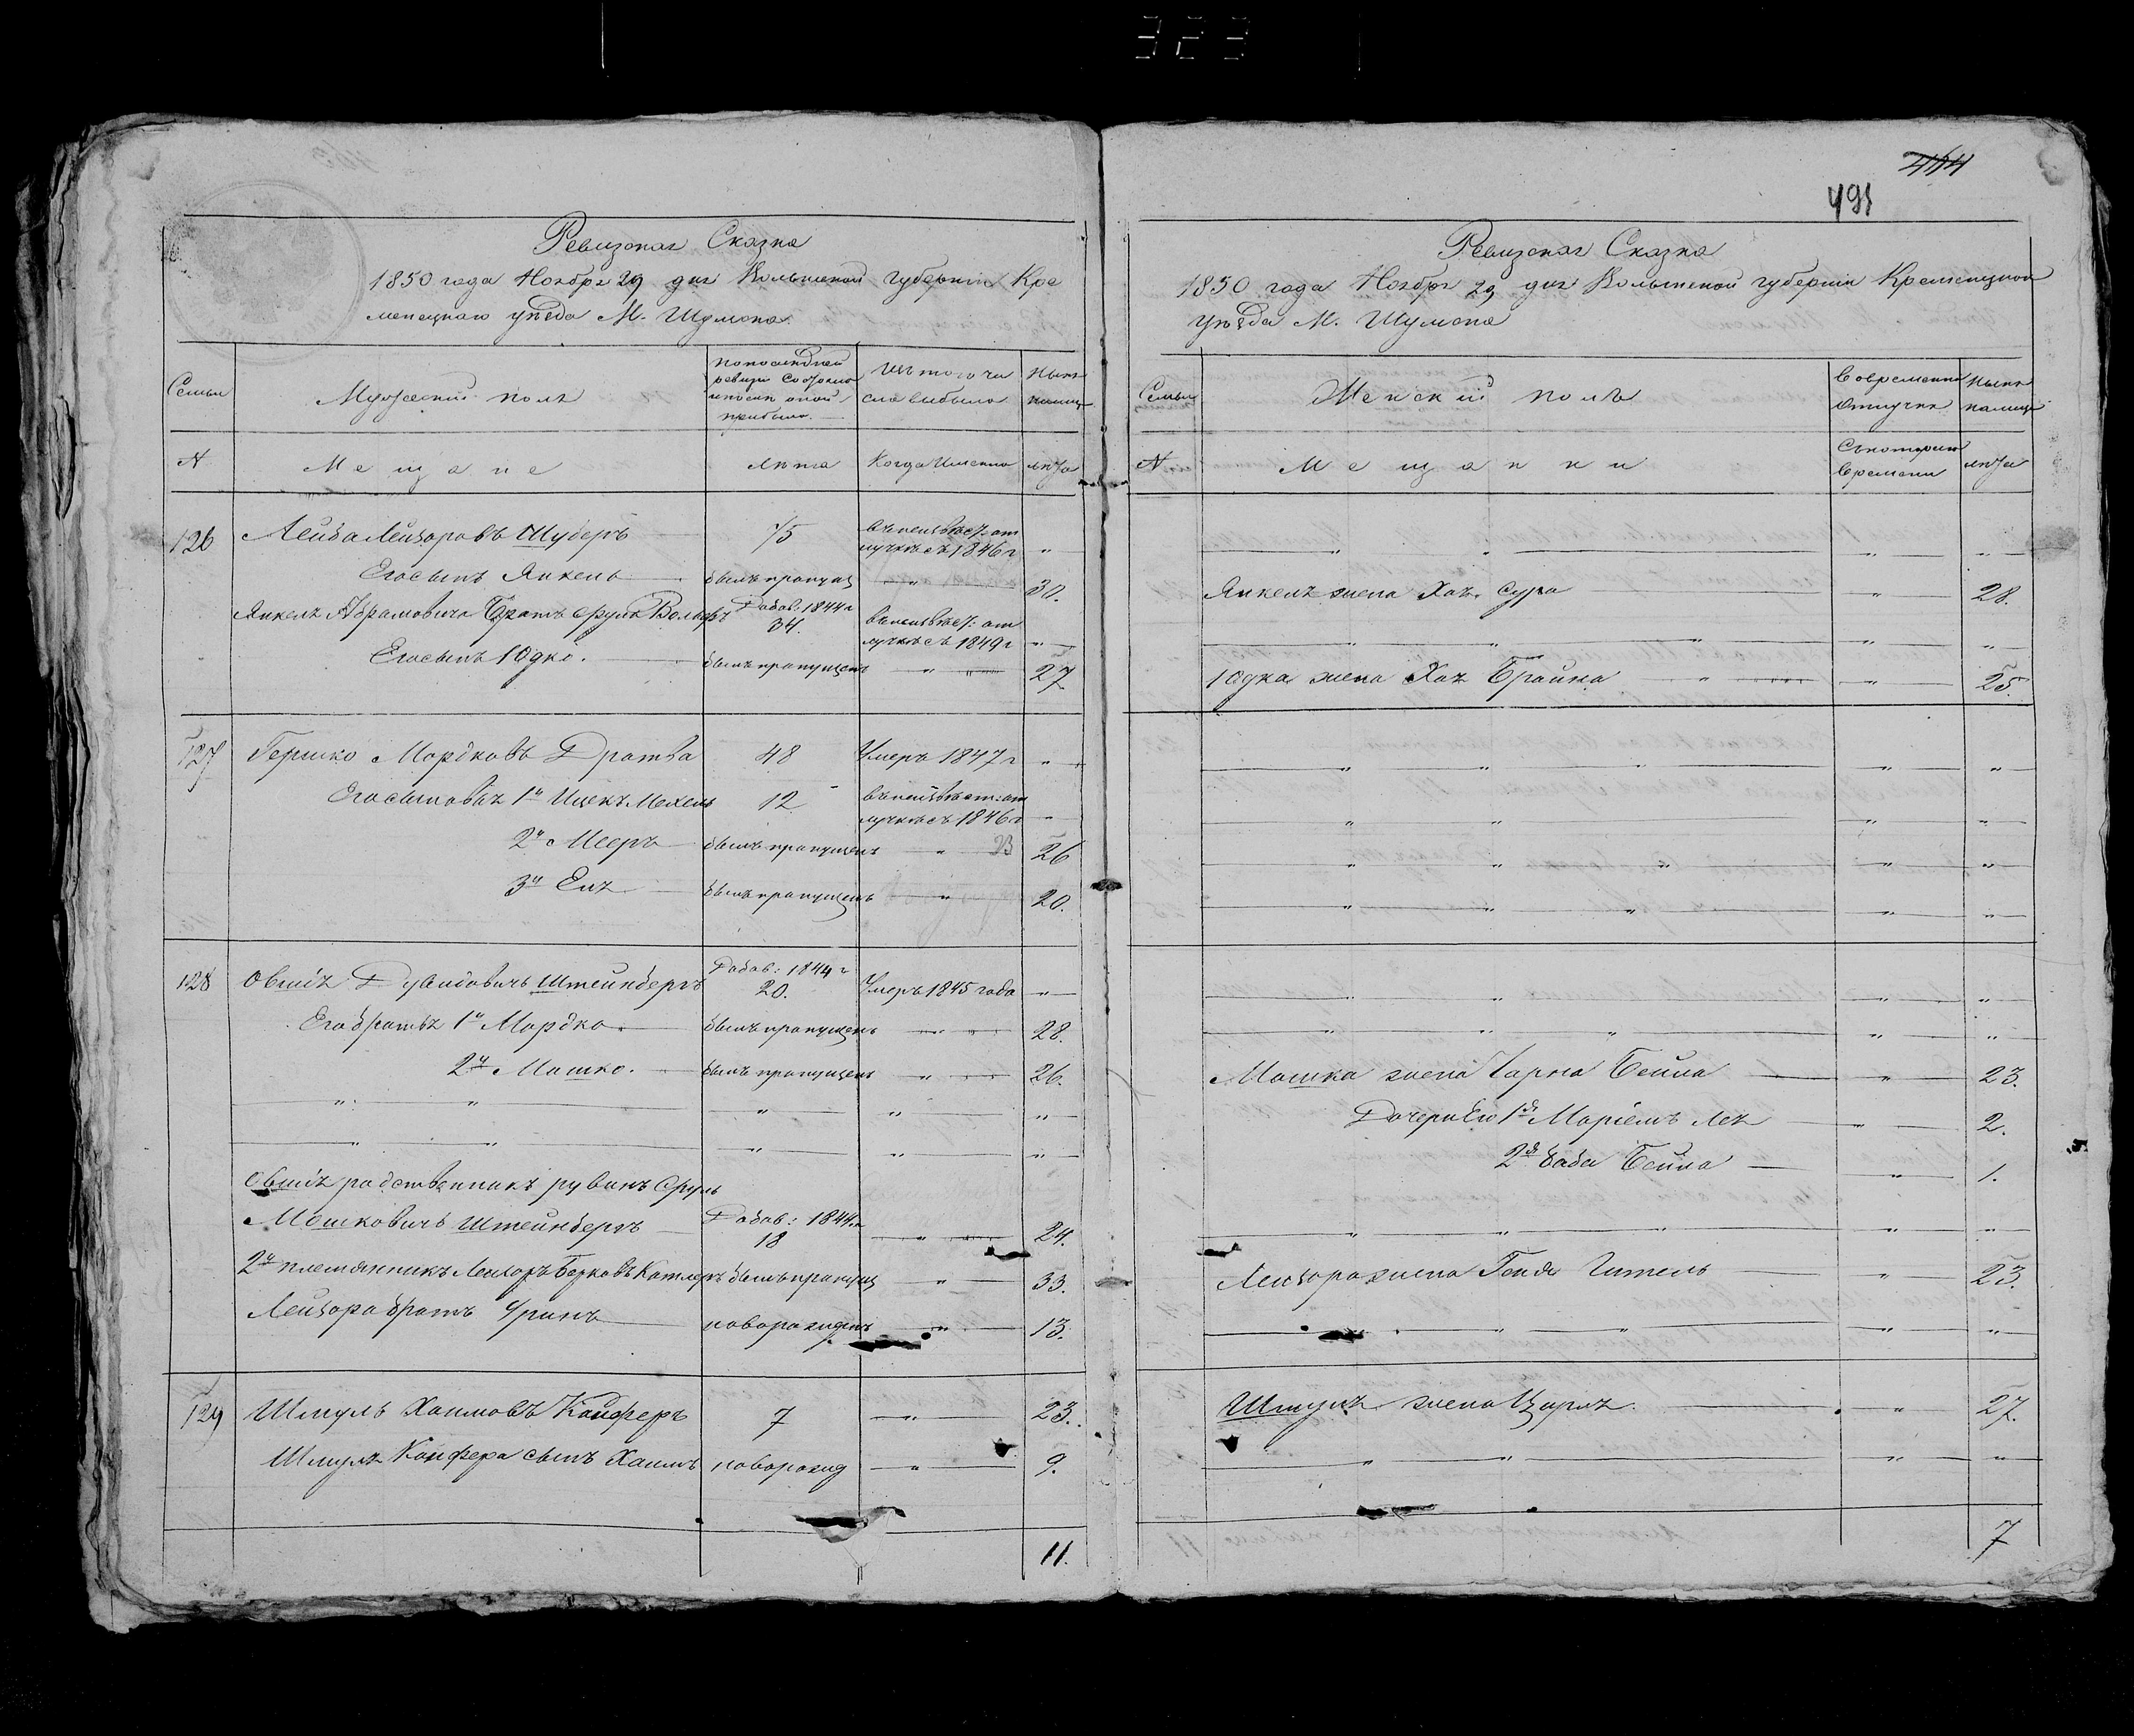 323
444
491
Ревизская Сказка
1850 года Ноября 29 дня Волынской губернии Кре
менецкаго уѣзда М. Шумска
Семьи
Мужеский полъ
По последней
ревизи состояло
и после оной
прибыло
Изъ того чи
сла выбыло
Ныне
налицо
N
Мещане
Лѣта
Когда Именно
лѣта
126 Лейба Лейзоровъ Шуберъ 75 въ неизвѣст: от
лучкѣ съ 1846 г "
Его сынъ Янкель былъ пропущ " 30.
Янкеля Абрамовича Братъ Сруль Вольфъ Добав: 1844 г
34. въ неизвѣст: от
лучкѣ съ 1849 г "
Его сынъ Юдко. былъ пропущенъ " " 27
127 Гершко Мордковъ Дратва 48 Умеръ 1847 г "
Его сыновья 1й Ицекъ Мехель 12 въ неизвѣст: от
лучкѣ съ 1846 г "
2й Мееръ былъ пропущенъ " 23 26
3й Еля былъ пропущенъ " 20.
128 Овшія Дувидовичъ Штейнбергъ Добав: 1844 г
20. Умеръ 1845 года "
Его братья 1й Мордко былъ пропущенъ " " 28.
2й Мошко. былъ пропущенъ " 26.
" " " " "
" " " " "
Овшія родственникъ рувинъ Сруль
Мошковичъ Штейнбергъ Добав: 1844 г
18 " " 24.
2й племянникъ Лейзоръ Берковъ Котляръ былъ пропущ " 33.
Лейзора братъ Уринъ новорожденъ " 13.
129 Шмуль Хаимовъ Канферъ 7 " 23.
Шмуля Канфера сынъ Хаимъ новорожд " 9.
11.
Ревизская Сказка
1850 года Ноября 29 дня Волынской губернии Кременецкой
уѣзда М. Шумска
Семьи
Женский полъ
Во временной
отлучке
Ныне
налицо
N
Мещанки
Съ котораго
времени
лѣта
" " " "
Янкеля жена Хая Сура " 28.
" " " " "
Юдка жена Хая Брайна " " 25.
" " " " "
" " " "
" " " " "
" " " " "
" " " "
" " " " "
Мошка жена Чарна Бейла " 23.
Дочери Его 1я Маріемъ Лея " 2.
2я баба Бейла " 1.
" " " " "
Лейзора жена Геня Гитель " 23.
" " " "
Шмуля жена Цирля " 27.
" " " "
7